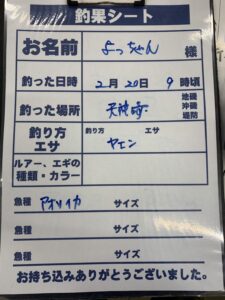 釣果シート
お名前 よっちゃん 様
釣った日時 2月 20日 9時頃
釣った場所 天神崎 地磯 沖磯 堤防
釣り方 エサ 釣り方 ヤエン エサ
ルアー、エギの種類・カラー
魚種 アオリイカ サイズ
魚種 サイズ
魚種 サイズ
お持ち込みありがとうございました。